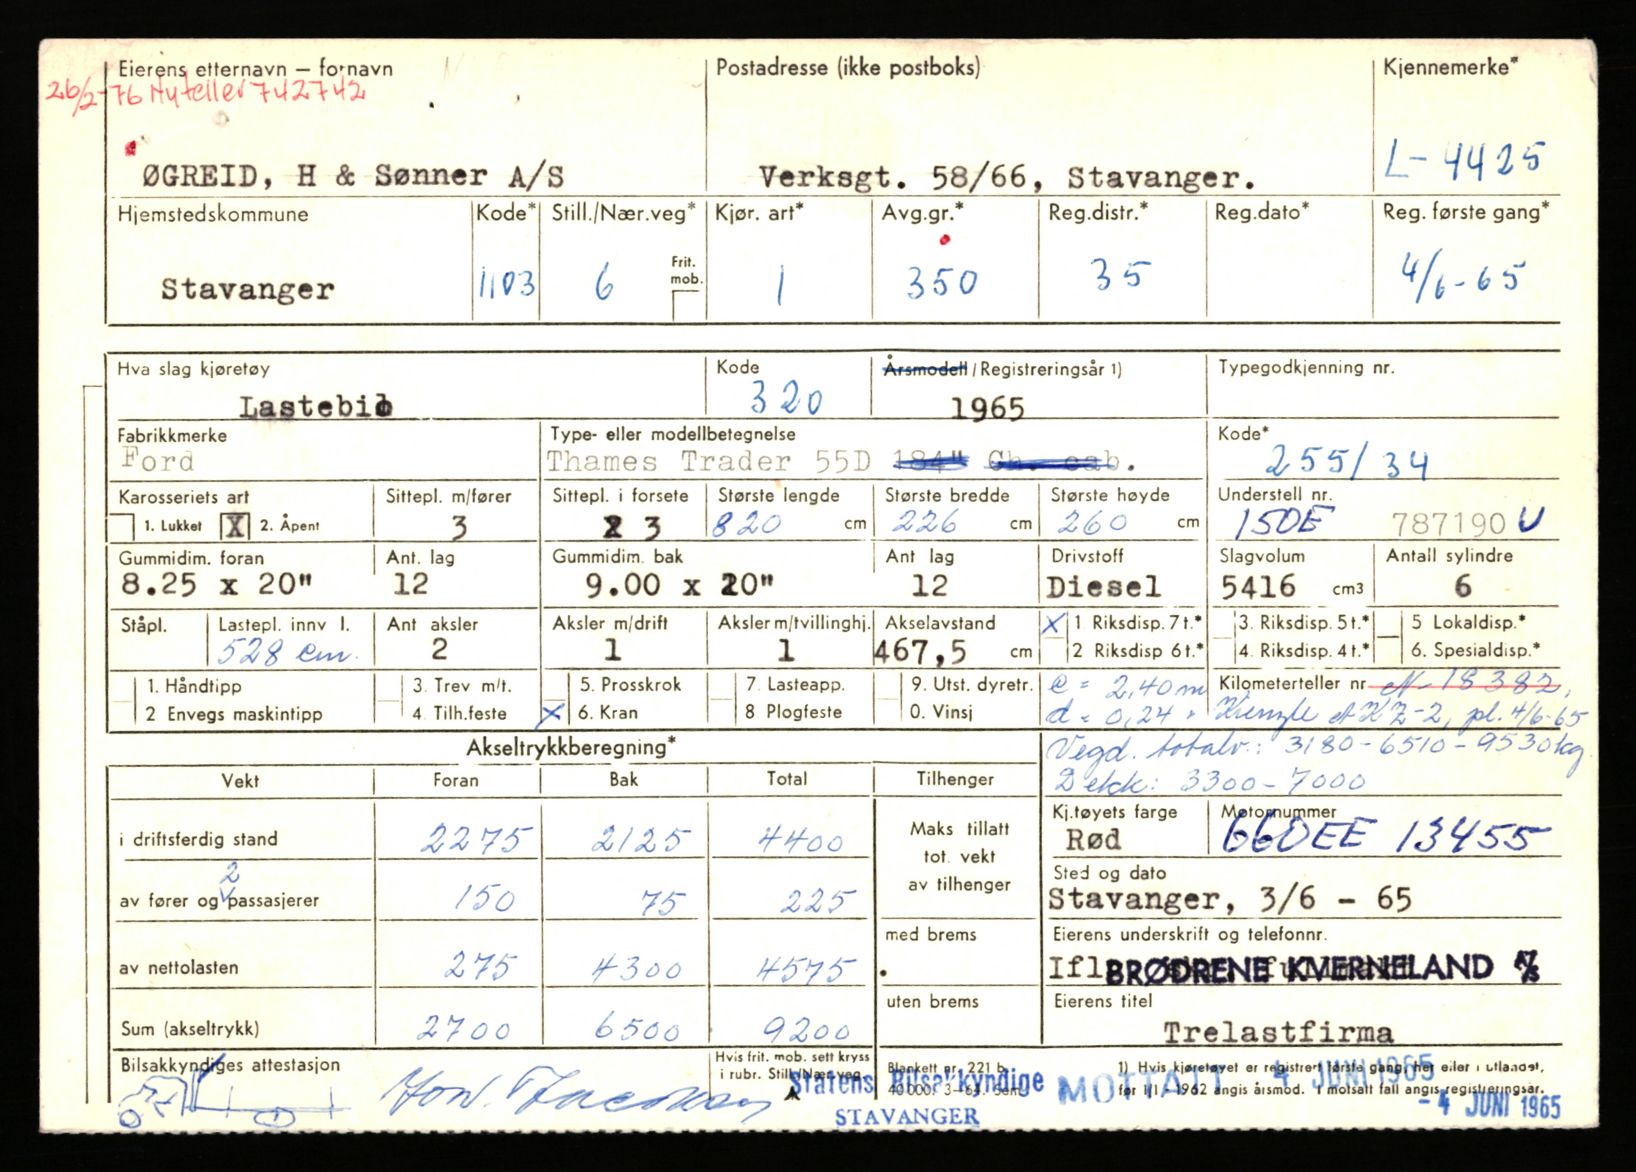 Eierens etternavn — fornavn Postadresse (ikke postboks) Kjennemerke*
26/2-76 Ny teller 742742
ØGREID, H & Sønner A/S Verksgt. 58/66, Stavanger. L-4425
Hjemstedskommune Kode* Still./Nær.veg* Kjør. art* Avg.gr.* Reg.distr.* Reg.dato* Reg. første gang*
Frit. mob.
Stavanger 1103 6 1 350 35 4/6-65
Hva slag kjøretøy Kode Årsmodell / Registreringsår 1) Typegodkjenning nr.
Lastebil 320 1965
Fabrikkmerke Type- eller modellbetegnelse Kode*
Ford Thames Trader 55D 184" Ch. cab. 255/34
Karosseriets art Sittepl. m/fører Sittepl. i forsete Største lengde Største bredde Største høyde Understell nr.
1. Lukket X 2. Åpent 3 2 3 820 cm 226 cm 260 cm 150E 787190 U
Gummidim. foran Ant. lag Gummidim. bak Ant lag Drivstoff Slagvolum Antall sylindre
8.25 x 20" 12 9.00 x 20" 12 Diesel 5416 cm3 6
Ståpl. Lastepl. innv l. Ant aksler Aksler m/drift Aksler m/tvillinghj. Akselavstand X 1 Riksdisp. 7 t.* 3. Riksdisp. 5 t.* 5 Lokaldisp.*
528 cm. 2 1 1 467,5 cm 2 Riksdisp 6 t.* 4. Riksdisp. 4 t.* 6. Spesialdisp.*
1. Håndtipp 3. Trev m/t. 5. Prosskrok 7. Lasteapp. 9. Utst. dyretr. e = 2,40 m Kilometerteller nr N-18382,
2 Envegs maskintipp 4. Tilh.feste X 6. Kran 8 Plogfeste 0. Vinsj d = 0,24 " Kienzle AKZ-2, pl. 4/6-65
Akseltrykkberegning* Vegd. totalv.: 3180-6510-9530 kg
Vekt Foran Bak Total Tilhenger Dekk: 3300-7000
Kj.tøyets farge Motornummer
i driftsferdig stand 2275 2125 4400 Maks tillatt tot. vekt av tilhenger Rød 660EE 13455
2
Sted og dato
av fører og passasjerer 150 75 225 Stavanger, 3/6 - 65
med brems Eierens underskrift og telefonnr.
av nettolasten 275 4300 4575 BRØDRENE KVERNELAND A/S
uten brems Eierens titel
Sum (akseltrykk) 2700 6500 9200 Trelastfirma
Bilsakkyndiges attestasjon Hvis frit. mob. sett kryss Blankett nr. 221 b. 1) Hvis kjøretøyet er registrert første gang her eller i utlandet,
i rubr. Still/Nær.veg 40 000. 3-64. Sem før 1/1 1962 angis årsmod. I motsatt fall angis registreringsår.
Statens Bilsakkyndige MOTTATT 4 JUNI 1965
STAVANGER - 4 JUNI 1965